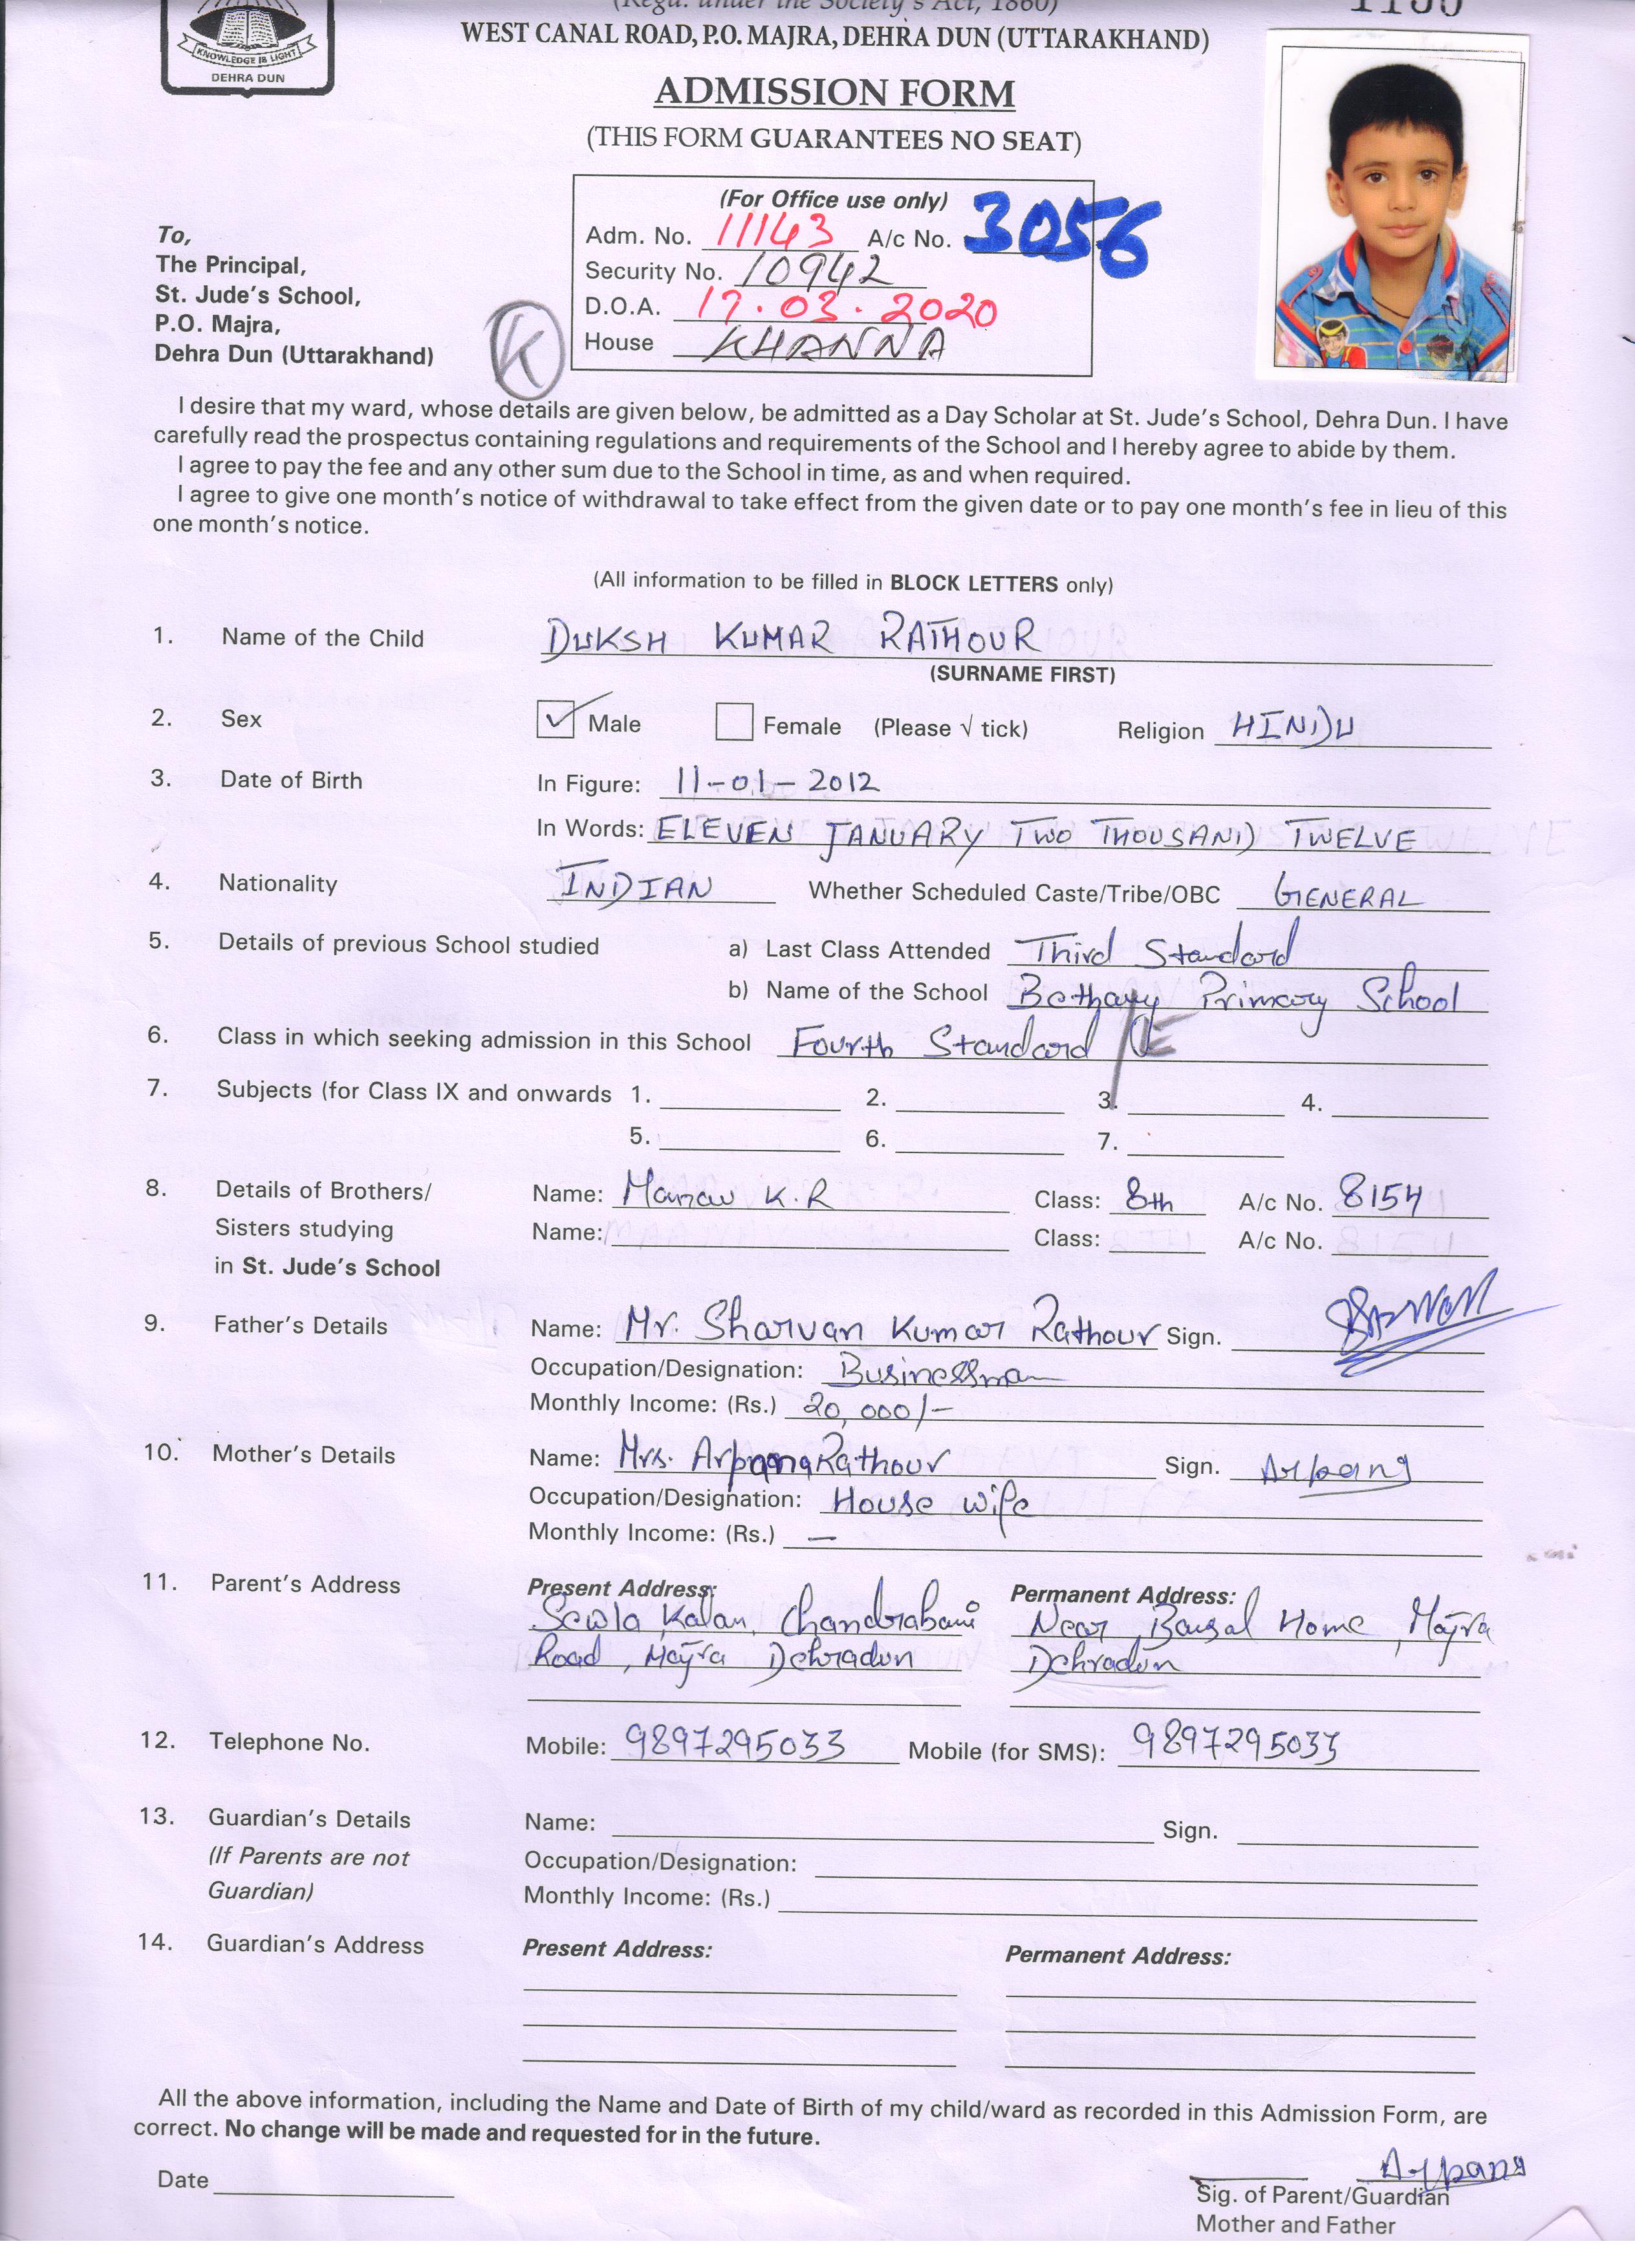 (Regd. under the Society's Act, 1860)
WEST CANAL ROAD, P.O. MAJRA, DEHRA DUN (UTTARAKHAND)
KNOWLEDGE IS LIGHT
DEHRA DUN
ADMISSION FORM
(THIS FORM GUARANTEES NO SEAT)
(For Office use only)
Adm. No. 11143 A/c No. 3056
Security No. 10942
D.O.A. 17.03.2020
House KHANNA
K
To,
The Principal,
St. Jude's School,
P.O. Majra,
Dehra Dun (Uttarakhand)
I desire that my ward, whose details are given below, be admitted as a Day Scholar at St. Jude's School, Dehra Dun. I have
carefully read the prospectus containing regulations and requirements of the School and I hereby agree to abide by them.
I agree to pay the fee and any other sum due to the School in time, as and when required.
I agree to give one month's notice of withdrawal to take effect from the given date or to pay one month's fee in lieu of this
one month's notice.
(All information to be filled in BLOCK LETTERS only)
1. Name of the Child DUKSH KUMAR RATHOUR
(SURNAME FIRST)
2. Sex Male Female (Please √ tick) Religion HINDU
3. Date of Birth In Figure: 11-01-2012
In Words: ELEVEN JANUARY TWO THOUSAND TWELVE
4. Nationality INDIAN Whether Scheduled Caste/Tribe/OBC GENERAL
5. Details of previous School studied a) Last Class Attended Third Standard
b) Name of the School Bethany Primary School
6. Class in which seeking admission in this School Fourth Standard
7. Subjects (for Class IX and onwards 1. 2. 3. 4.
5. 6. 7.
8. Details of Brothers/ Name: Manav K.R Class: 8th A/c No. 8154
Sisters studying Name: Class: A/c No.
in St. Jude's School
9. Father's Details Name: Mr. Sharvan Kumar Rathour Sign.
Occupation/Designation: Businessman
Monthly Income: (Rs.) 20,000/-
10. Mother's Details Name: Mrs. Arpana Rathour Sign. Arpana
Occupation/Designation: House wife
Monthly Income: (Rs.) —
11. Parent's Address Present Address: Permanent Address:
Sewla Kalan, Chandrabani Near Bansal Home, Majra
Road, Majra Dehradun Dehradun
12. Telephone No. Mobile: 9897295033 Mobile (for SMS): 9897295033
13. Guardian's Details Name: Sign.
(If Parents are not Occupation/Designation:
Guardian) Monthly Income: (Rs.)
14. Guardian's Address Present Address: Permanent Address:
All the above information, including the Name and Date of Birth of my child/ward as recorded in this Admission Form, are
correct. No change will be made and requested for in the future.
Date Arpana
Sig. of Parent/Guardian
Mother and Father